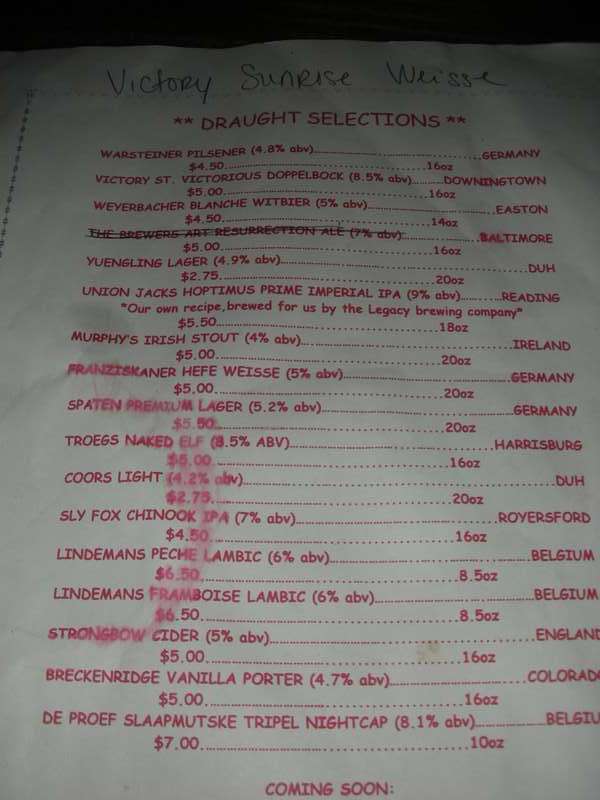 Victory Sunrise Weisse
** DRAUGHT SELECTIONS **
WARSTEINER PILSENER (4.8% abv)..............................GERMANY
$4.50..............................16oz
VICTORY ST. VICTORIOUS DOPPELBOCK (8.5% abv)..........DOWNINGTOWN
$5.00..............................16oz
WEYERBACHER BLANCHE WITBIER (5% abv)..............................EASTON
$4.50..............................14oz
THE BREWERS ART RESURRECTION ALE (7% abv)....................BALTIMORE
$5.00..............................16oz
YUENGLING LAGER (4.9% abv)..............................DUH
$2.75..............................20oz
UNION JACKS HOPTIMUS PRIME IMPERIAL IPA (9% abv)..........READING
"Our own recipe,brewed for us by the Legacy brewing company"
$5.50..............................18oz
MURPHY'S IRISH STOUT (4% abv)..............................IRELAND
$5.00..............................20oz
FRANZISKANER HEFE WEISSE (5% abv)..............................GERMANY
$5.00..............................20oz
SPATEN PREMIUM LAGER (5.2% abv)..............................GERMANY
$5.50..............................20oz
TROEGS NAKED ELF (8.5% ABV)..............................HARRISBURG
$5.00..............................16oz
COORS LIGHT (4.2% abv)..............................DUH
$2.75..............................20oz
SLY FOX CHINOOK IPA (7% abv)..............................ROYERSFORD
$4.50..............................16oz
LINDEMANS PECHE LAMBIC (6% abv)..............................BELGIUM
$6.50..............................8.5oz
LINDEMANS FRAMBOISE LAMBIC (6% abv)..............................BELGIUM
$6.50..............................8.5oz
STRONGBOW CIDER (5% abv)..............................ENGLAND
$5.00..............................16oz
BRECKENRIDGE VANILLA PORTER (4.7% abv)..............................COLORADO
$5.00..............................16oz
DE PROEF SLAAPMUTSKE TRIPEL NIGHTCAP (8.1% abv)....................BELGIU
$7.00..............................10oz
COMING SOON: